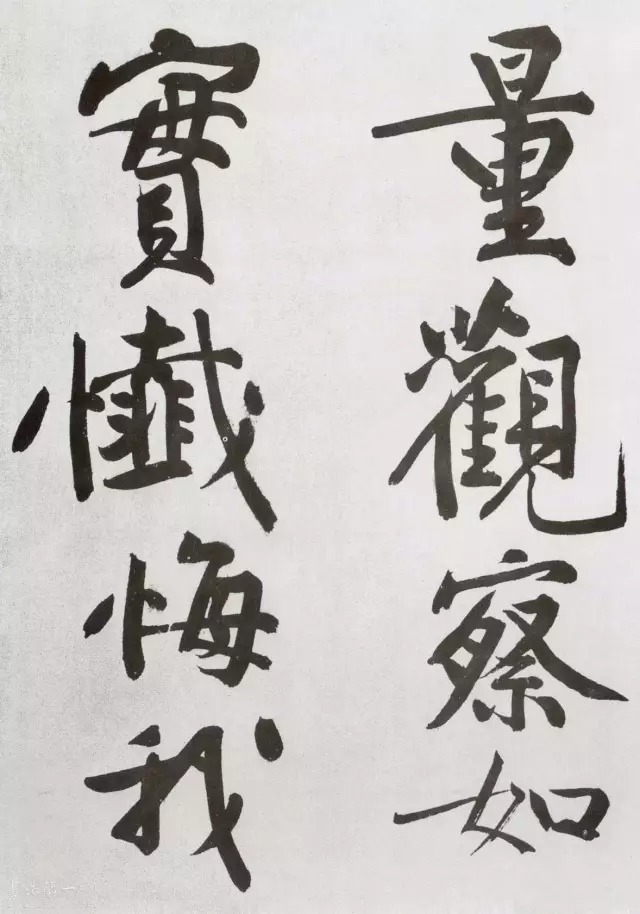 量觀察如
實懺悔我